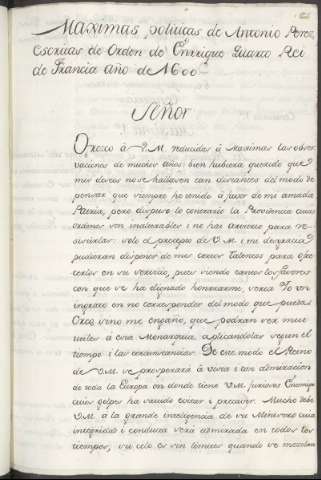 Maximas politicas de Antonio Perez,
escritas de Orden de Enrrique Quarto Rei
de Francia año de 1600
Señor
Ofrezco à V.M. reducidas à Maximas las obser
vaciones de muchos años: bien hubiera querido que
mis deseos no se hallasen tan distantes del modo de
pensar que siempre he tenido à favor de mi amada
Patria, pero dispuso lo contrario la Providencia cuias
ordenes son inalterables i no hai arvitrio para
solo el precepto de V.M. i mi desgracia
pudieran disponer de mis cortos Talentos para
en su servicio, pues siendo tantos los favores
con que se ha dignado honrrarme, seria Yo un
ingrato en no corresponder del modo que pueda:
Creo, si no me engaño, que podran ser mui
utiles à una Monarquia, aplicandolas segun el
tiempo i las circunstancias. De este modo el Reino
de V.M. se prosperarà à vista i con admiracion
de toda la Europa en donde tiene V.M. furiosos Enemigos
cuios golpes ha savido evitar i precaver. Mucho debe
V.M. à la grande inteligencia de su Ministro cuia
integridad i conducta sera admirada en todos los
tiempos, su celo es sin limites quando se